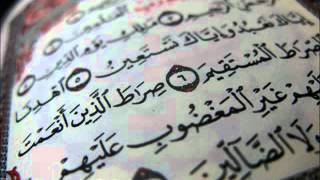 الرحيم ﴿٣﴾ ملك يوم الدين ﴿٤﴾
إِيَّاكَ نَعْبُدُ وَإِيَّاكَ نَسْتَعِينُ ﴿٥﴾ اهْدِنَا
الصِّرَاطَ الْمُسْتَقِيمَ ﴿٦﴾ صِرَاطَ الَّذِينَ أَنْعَمْتَ
عَلَيْهِمْ غَيْرِ الْمَغْضُوبِ عَلَيْهِمْ
وَلَا الضَّالِّينَ